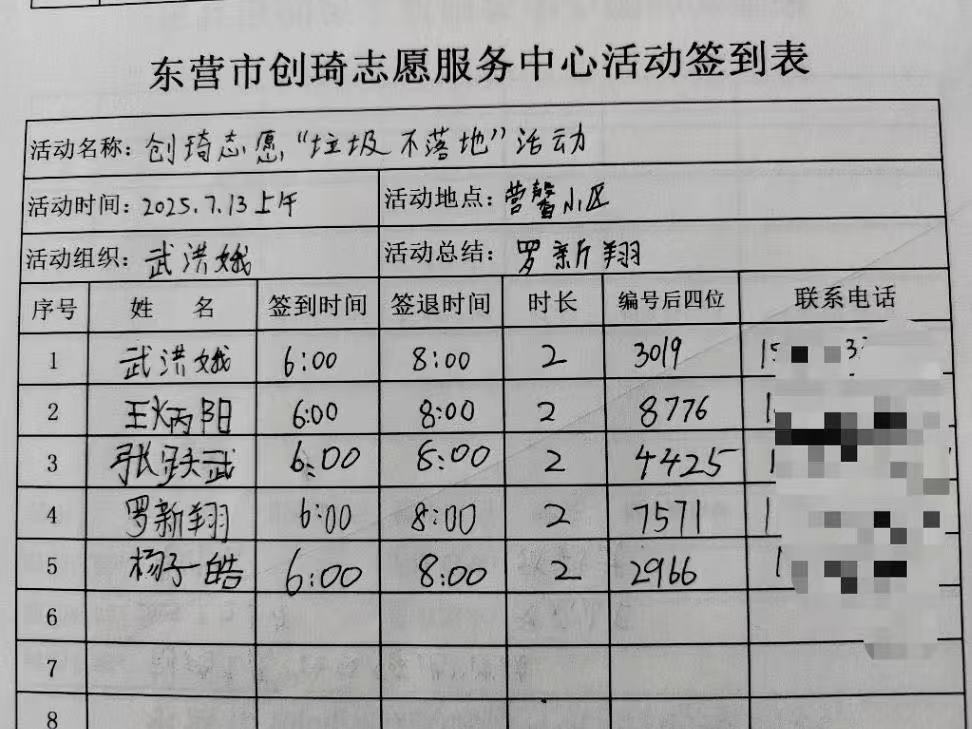 东营市创琦志愿服务中心活动签到表
活动名称：创琦志愿“垃圾不落地”活动
活动时间：2025.7.13上午 活动地点：营馨小区
活动组织：武洪娥 活动总结：罗新翔
序号 姓名 签到时间 签退时间 时长 编号后四位 联系电话
1 武洪娥 6:00 8:00 2 3019
2 王炳阳 6:00 8:00 2 8776
3 张跃武 6:00 8:00 2 4425
4 罗新翔 6:00 8:00 2 7571
5 杨子皓 6:00 8:00 2 2966
6
7
8